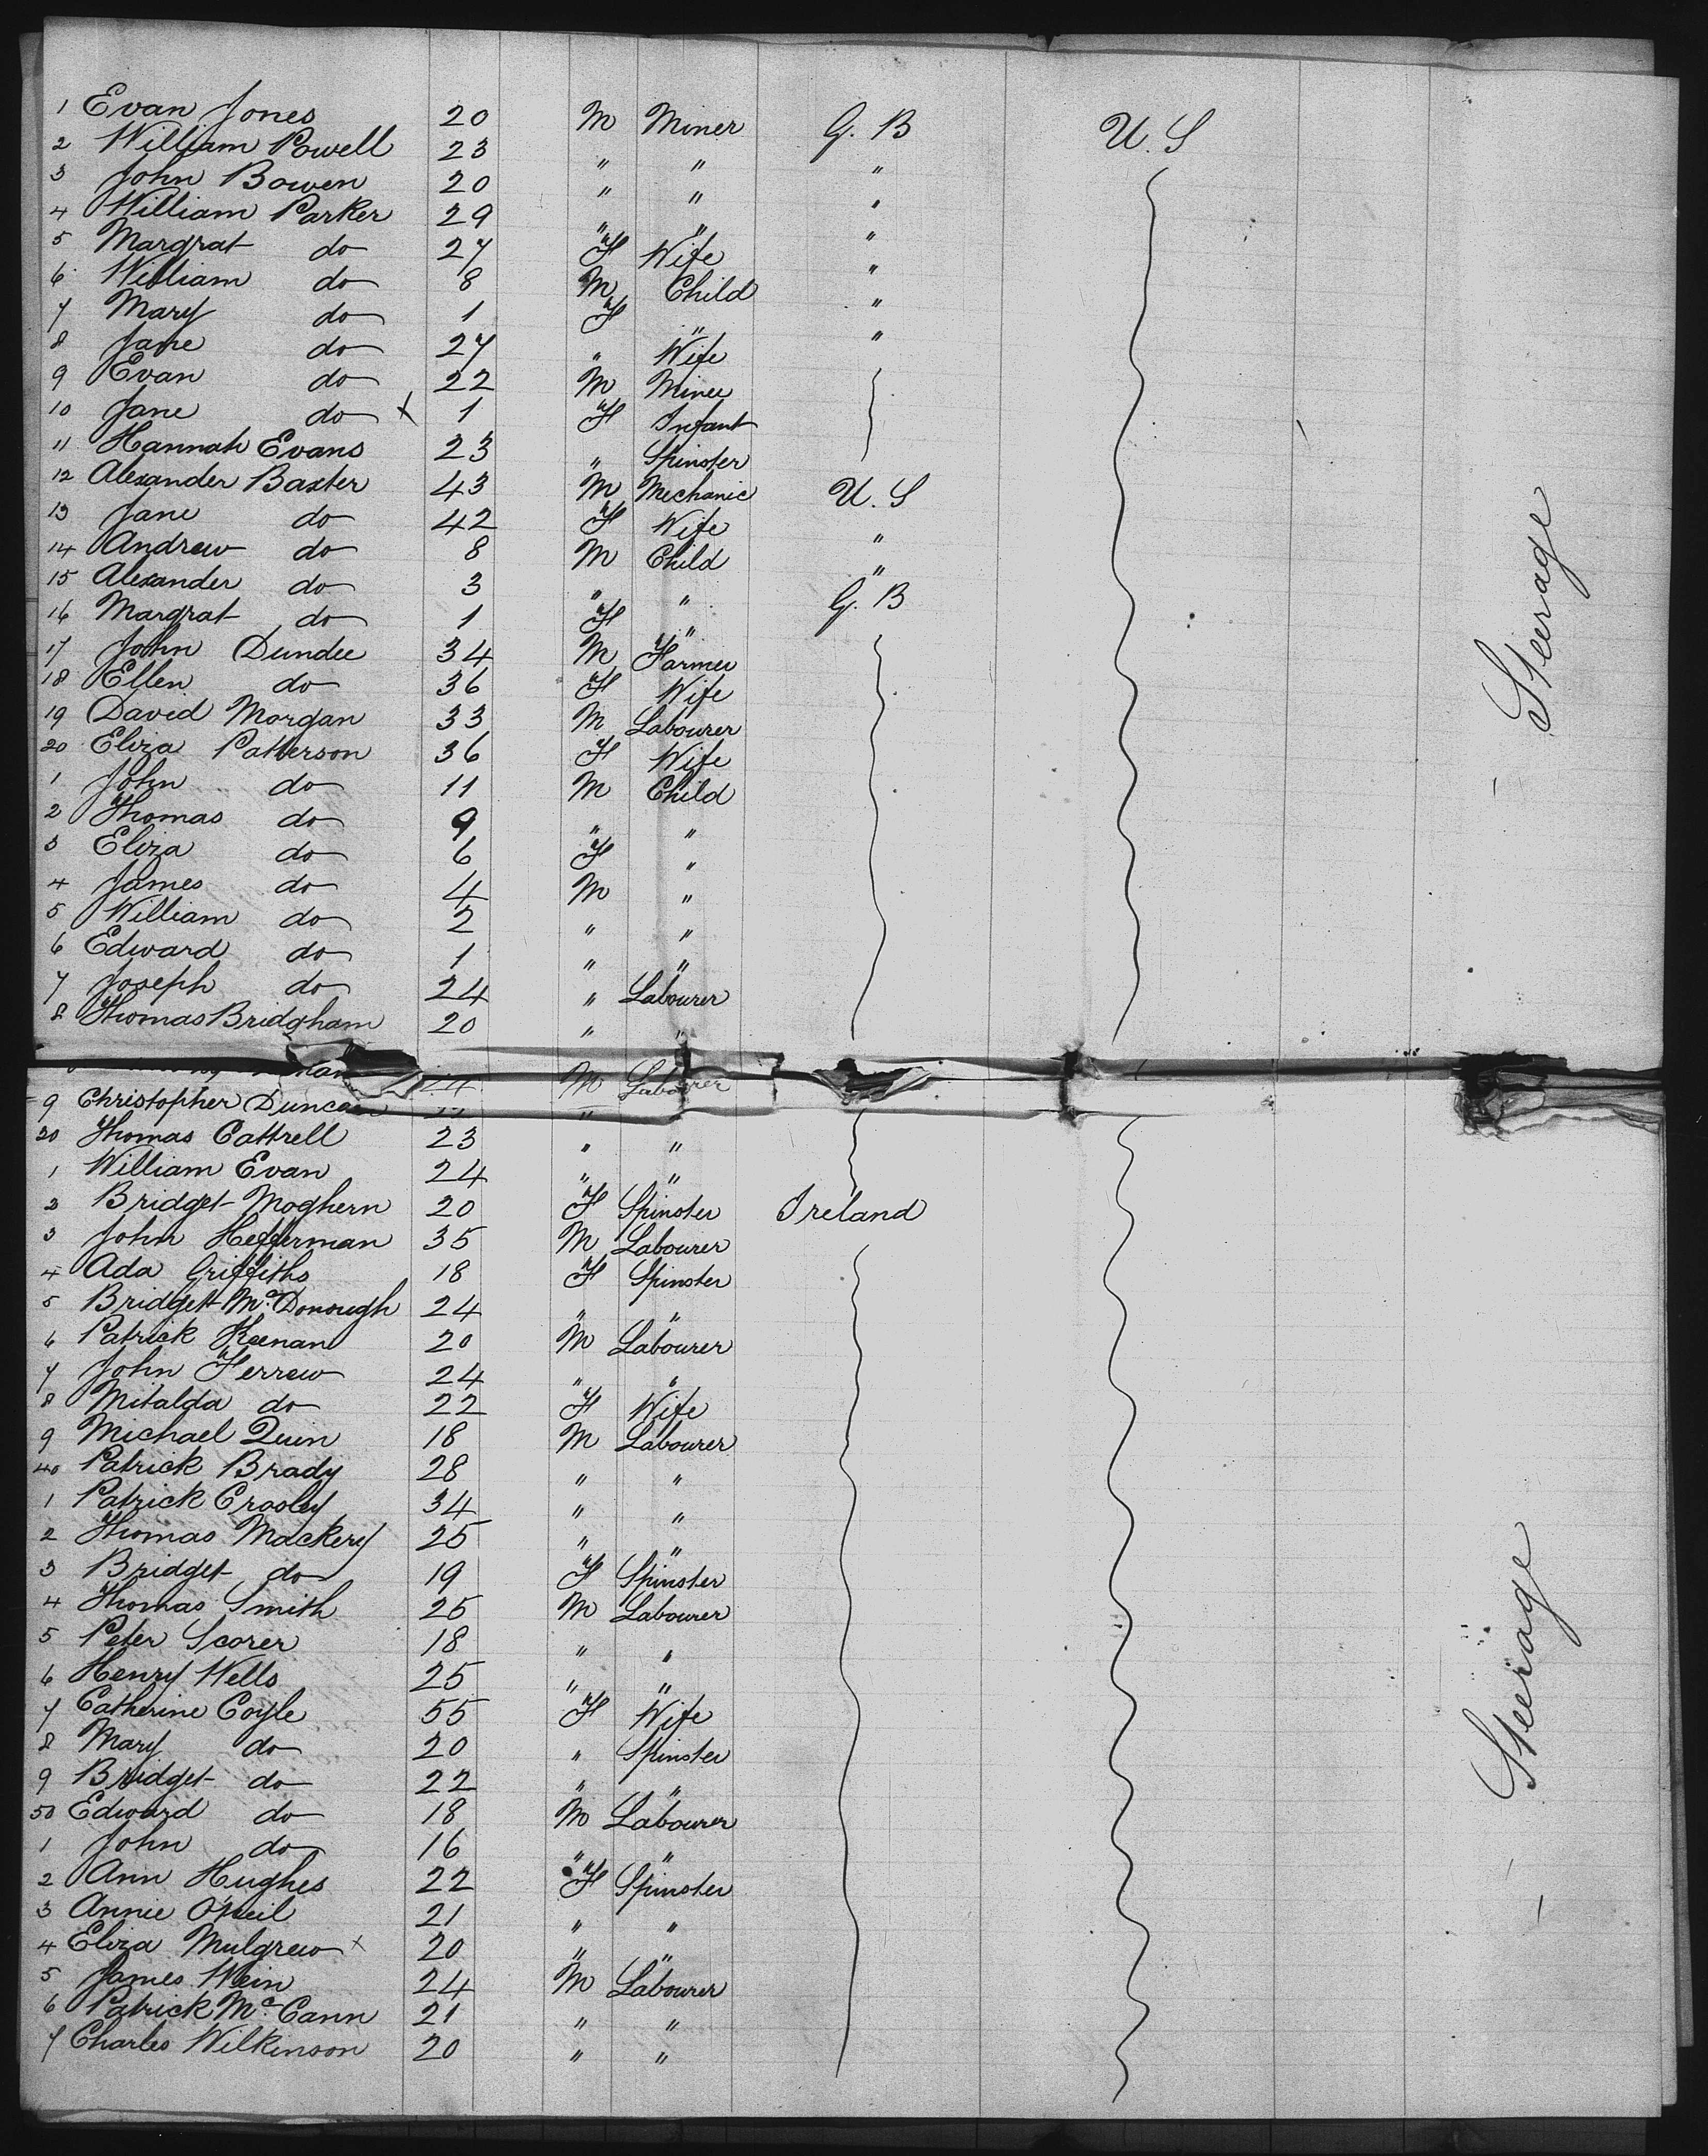 1 Evan Jones 20 M Miner G. B U. S
2 William Powell 23 " " "
3 John Bowen 20 " " "
4 William Parker 29 " " "
5 Margrat do 27 F Wife "
6 William do 8 M Child "
7 Mary do 1 F " "
8 Jane do 27 " Wife
9 Evan do 22 M Miner
10 Jane do x 1 F Infant
11 Hannah Evans 23 " Spinster
12 Alexander Baxter 43 M Mechanic U. S
13 Jane do 42 F Wife "
14 Andrew do 8 M Child "
15 Alexander do 3 " " G. B
16 Margrat do 1 F "
17 John Dundee 34 M Farmer
18 Ellen do 36 F Wife
19 David Morgan 33 M Labourer
20 Eliza Patterson 36 F Wife
1 John do 11 M Child
2 Thomas do 9 " "
3 Eliza do 6 F "
4 James do 4 M "
5 William do 2 " "
6 Edward do 1 " "
7 Joseph do 24 " Labourer
8 Thomas Bridgham 20 " "
Steerage
M Labourer
9 Christopher Duncan "
30 Thomas Cattrell 23 " "
1 William Evan 24 " "
2 Bridget Moghern 20 F Spinster Ireland
3 John Hefferman 35 M Labourer
4 Ada Griffiths 18 F Spinster
5 Bridgett McDonough 24 " "
6 Patrick Keenan 20 M Labourer
7 John Ferrew 24 " "
8 Mitalda do 22 F Wife
9 Michael Quin 18 M Labourer
40 Patrick Brady 28 " "
1 Patrick Crosley 34 " "
2 Thomas Mackery 25 " "
3 Bridget do 19 F Spinster
4 Thomas Smith 25 M Labourer
5 Peter Scorer 18 " "
6 Henry Wells 25 " "
7 Catherine Coyle 55 F Wife
8 Mary do 20 " Spinster
9 Bridget do 22 " "
50 Edward do 18 M Labourer
1 John do 16 " "
2 Ann Hughes 22 F Spinster
3 Annie O'Neil 21 " "
4 Eliza Mulgrew x 20 " "
5 James Wein 24 M Labourer
6 Patrick McCann 21 " "
7 Charles Wilkinson 20 " "
Steerage